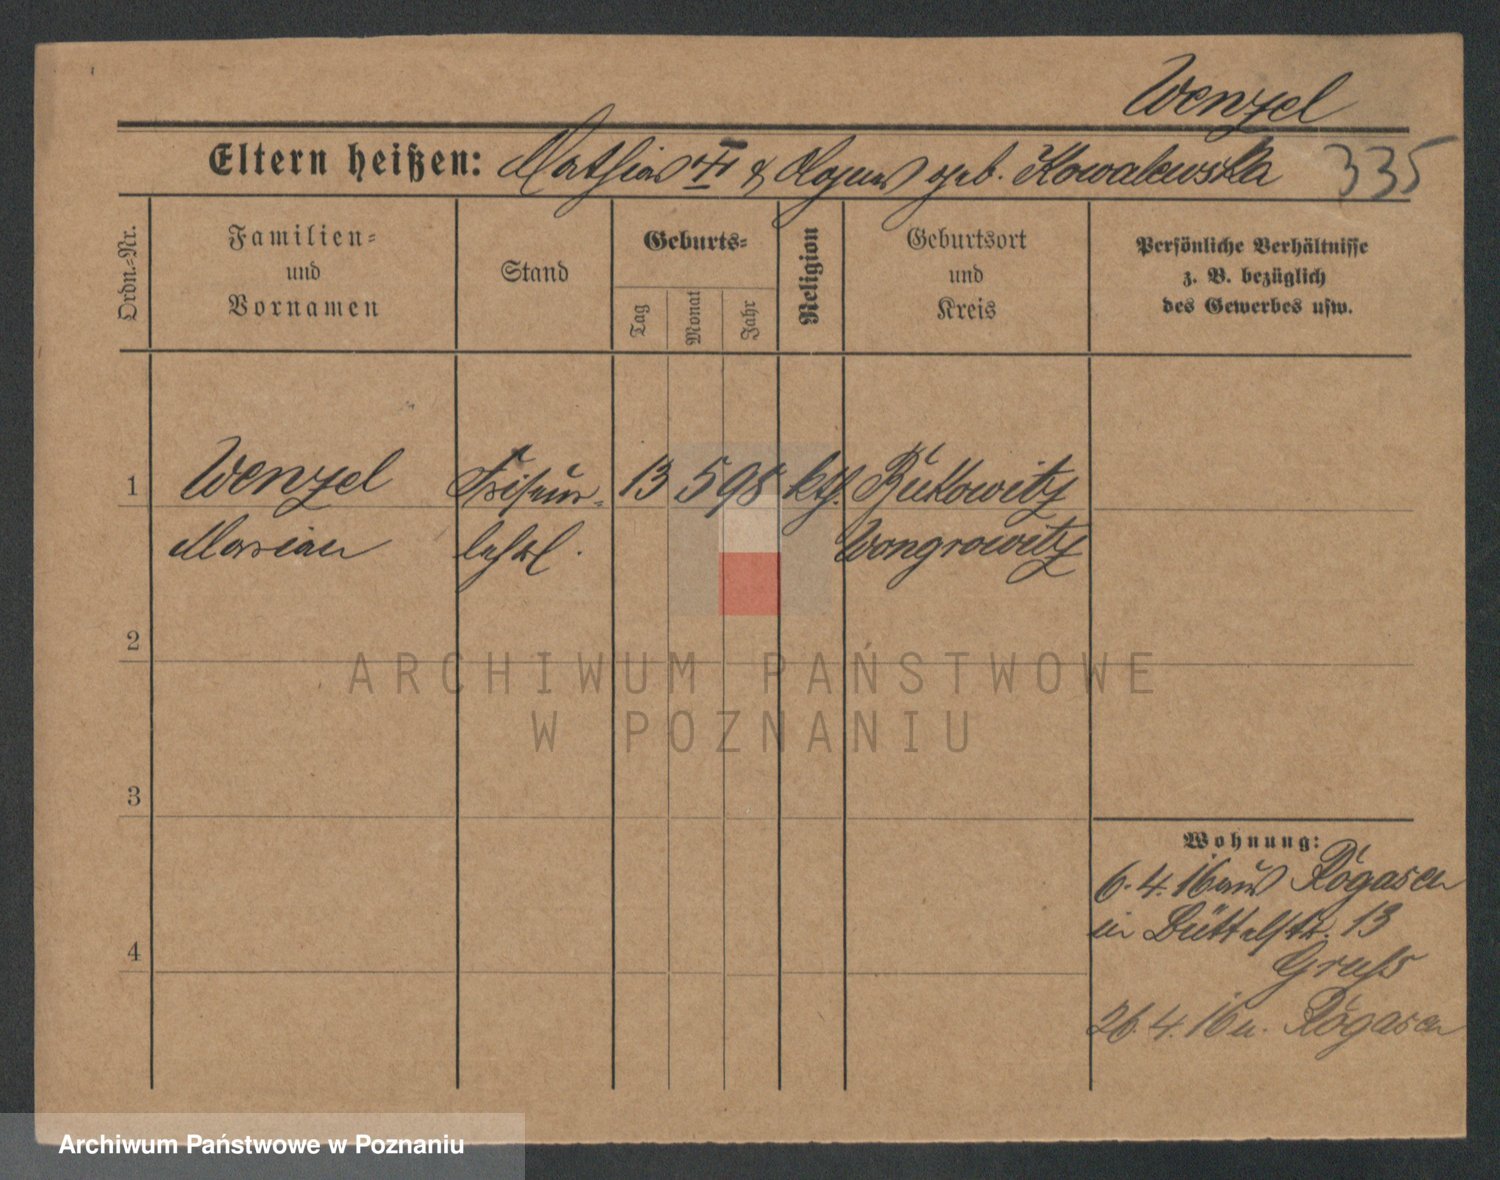 Wenzel
Eltern heißen: Mathias & Agnes geb. Kowalewska 335
Ordn.-Nr.
Familien-
und
Vornamen
Stand
Geburts-
Tag
Monat
Jahr
Religion
Geburtsort
und
Kreis
Persönliche Verhältnisse
z. B. bezüglich
des Gewerbes usw.
1 Wenzel Friseur- 13 5 98 kth. Bukowitz
Marian lehrl. Wongrowitz
2
ARCHIWUM PAŃSTWOWE
W POZNANIU
3
4
Wohnung:
6.4.16 aus Rogasen
in Büttelstr. 13
26.4.16 n. Rogasen
Archiwum Państwowe w Poznaniu